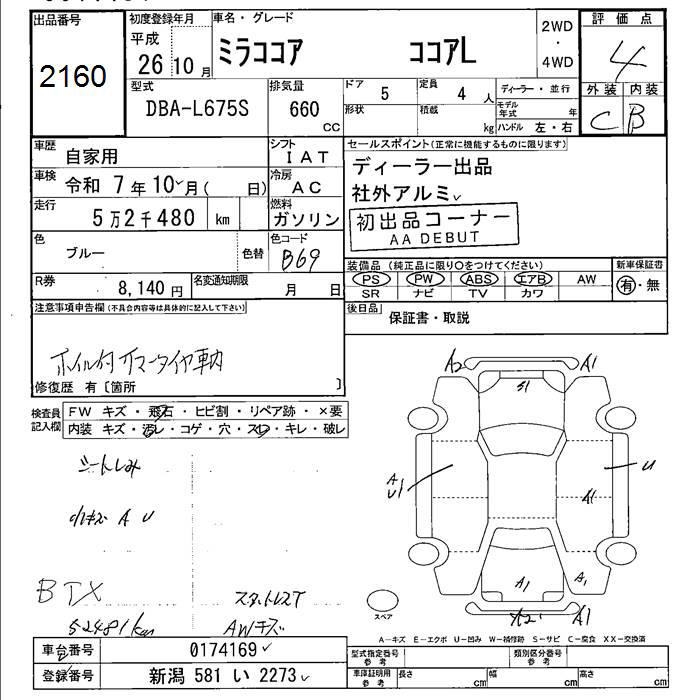 出品番号
2160
初度登録年月
平成
26年10月
車名・グレード
ミラココア ココアL
2WD
・
4WD
評価点
4
外装 内装
C B
型式
DBA-L675S
排気量
660
CC
ドア 5
形状
定員 4 人
積載 kg
ディーラー・並行
モデル年式 年
ハンドル 左・右
車歴 自家用
シフト IAT
車検 令和 7年10月( 日)
冷房 AC
走行 5万2千480 km
燃料 ガソリン
色 ブルー
色替
色コード B69
R券 8,140円
名変通知期限 月 日
セールスポイント(正常に機能するものに限ります)
ディーラー出品
社外アルミ
初出品コーナー
AA DEBUT
装備品(純正品に限り○をつけてください)
PS PW ABS エアB AW
SR ナビ TV カワ
新車保証書
有・無
後日品 保証書・取説
注意事項申告欄(不具合内容等は具体的に記入して下さい)
ホイル付ノーマータイヤ車内
修復歴 有〔箇所 〕
検査員記入欄
FW キズ・飛石・ヒビ割・リペア跡・×要
内装 キズ・汚レ・コゲ・穴・スレ・キレ・破レ
シートしみ
小キズ A U
BTX
52481km
スタットレスT
AWキズ
A2 A1
S1
A
U1
U
A1
A1 A1
A2 A1
スペア
A-キズ E-エクボ U-凹み W-補修跡 S-サビ C-腐食 XX-交換済
車台番号 0174169
登録番号 新潟 581 い 2273
型式指定番号
参考
類別区分番号
参考
車庫証明用
参考
長さ cm 幅 cm 高さ cm